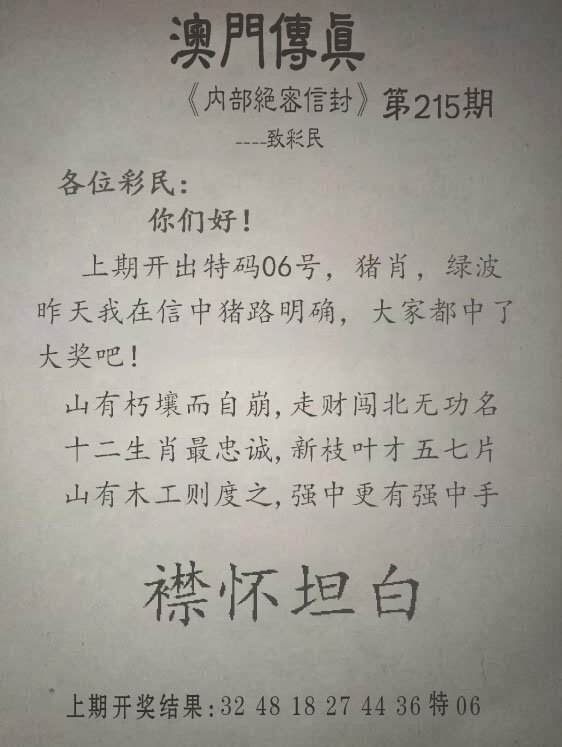 澳門傳眞
《内部絕密信封》第215期
----致彩民
各位彩民：
你们好！
上期开出特码06号，猪肖，绿波
昨天我在信中猪路明确，大家都中了
大奖吧！
山有朽壤而自崩,走财闯北无功名
十二生肖最忠诚,新枝叶才五七片
山有木工则度之,强中更有强中手
襟怀坦白
上期开奖结果:32 48 18 27 44 36 特 06